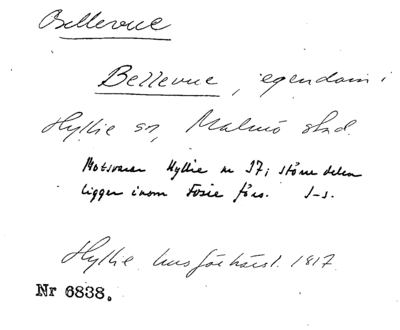 Bellevue
Bellevue, egendom i
Hyllie sn, Malmö stad.
Motsvarar Hyllie nr 17; större delen
ligger inom Fosie förs. I-s.
Hyllie husförhörsl. 1817
Nr 6838.